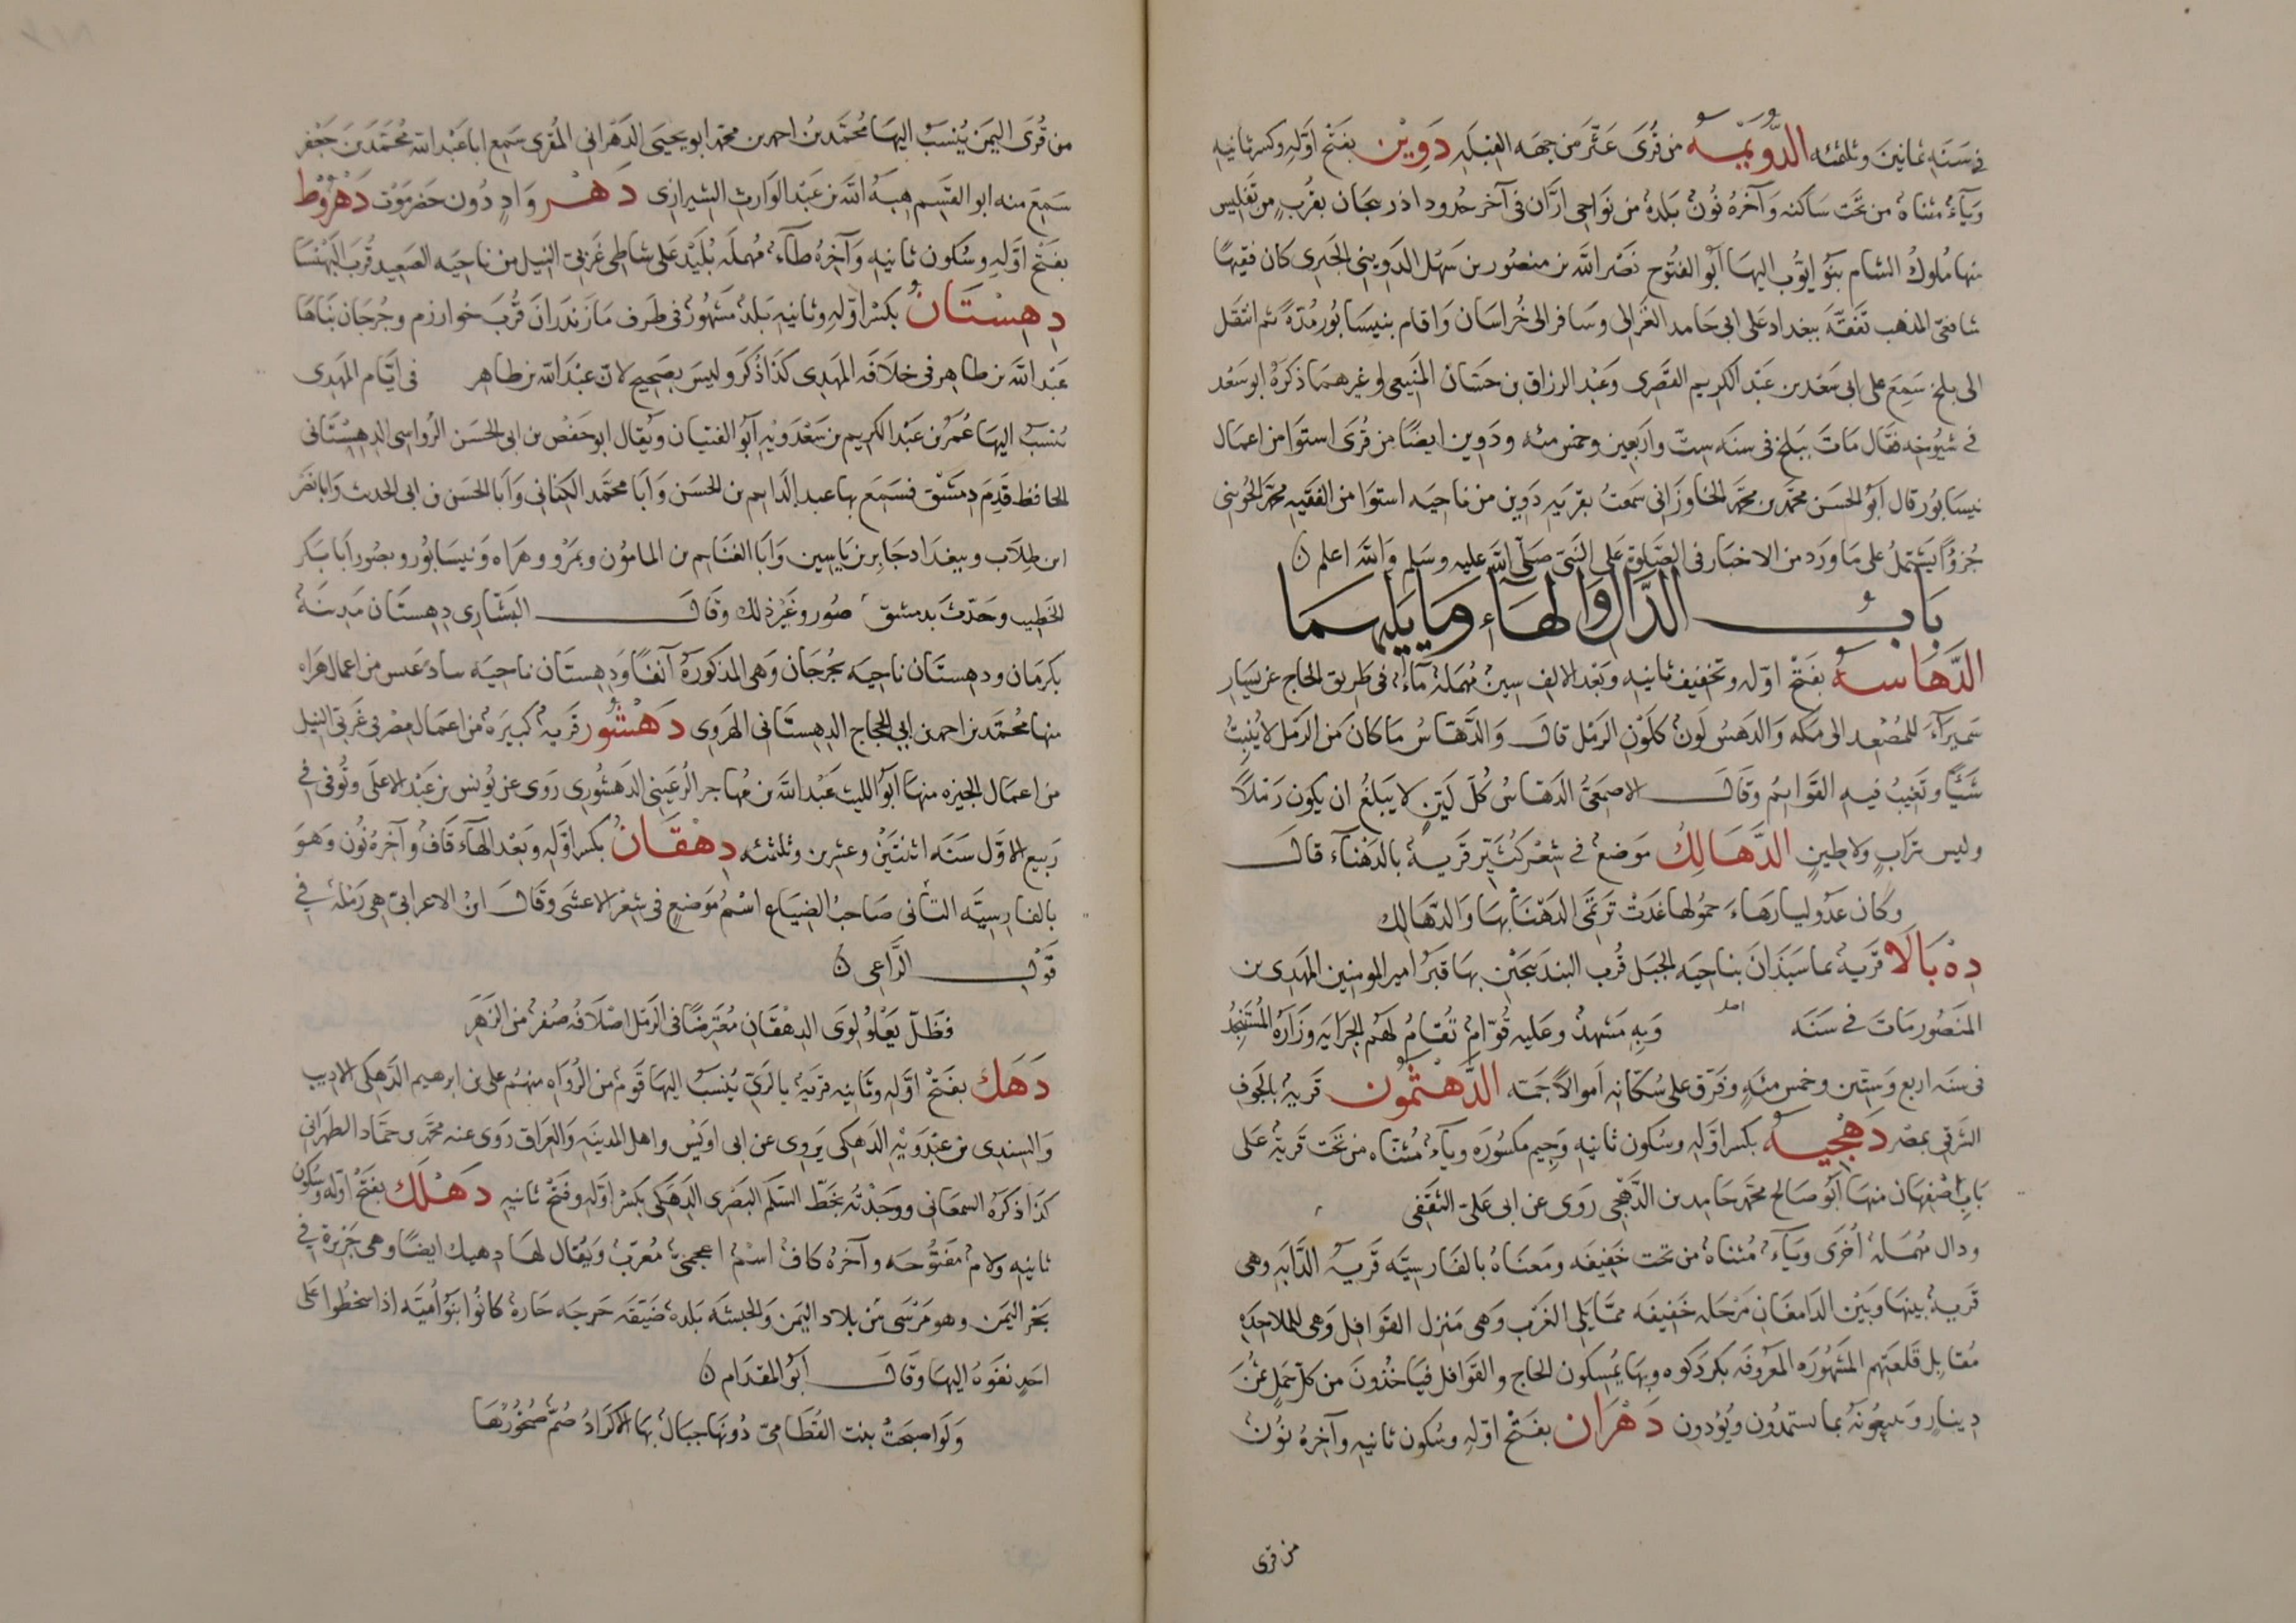 في سَنَه ثمانينَ وثلثمئه الدُّويْمَسَة من قُرَى عَثَّر من جهه القبله دَوِيْن بفَتْح اوّلهِ وكسر ثانيه
وَيَاءٌ مثناهٌ من تحَت سَاكنه وَآخرهُ نُونٌ بَلدهٌ من نوَاحى ارَّان فى آخر حدُود اذربيجان بقُربِ من تفليس
منها مُلوكُ الشام بَنُو ايوُب اليهَا ابُو الفتُوح نَصْر الله بن منصُور بن سَهْل الدَوينِى الجَبرى كان فقيهًا
شافعىّ المذهب تفَقَّهَ ببغداد عَلى ابى حَامد الغَزالى وسَافر الى خُراسَان وَاقام بنيسَابُور مُدّهً ثم انتقل
الى بلخ سَمِعَ على ابى سَعْد بن عَبْد الكريم القصَرى وَعَبْد الرزاق بن حسَان المَنيعى وغيرهمَا ذكرَهُ ابو سَعْد
فى شيُوخه فقال مَاتَ ببَلخ فى سنَه ستّ وَاربَعين وخمس مئه ودَوين ايضًا من قُرَى استوَا من اعمَال
نيسَابوُر قال ابوُ الحسَن محمّد بن محمّد الخاورَانى سَمعتُ بقرَيه دَوِين من ناحيَه استوَا من الفقيه محمّد الجُوينى
جُزءًا يشَتملُ على مَا وَرَد من الاخبَار فى الصَّلوة عَلى النَبىّ صَلّى الله عليه وسَلم وَالله اعلم ن
بَابُ الدَّال وَالهَاء وَمَا يَليهمَا
الدَّهَاسَة بفَتْح اوّله وتخفيف ثانيه وبَعْد الالف سينٌ مُهمَلهٌ مَاءٌ فى طَريق الحاج عن يسَار
سَميرَآءَ للمُصْعِد الى مكّه وَالدهَسُ لَونٌ كلَوْنِ الرَمل قالَ وَالدَهَاسُ مَا كانَ من الرَمل لا يُنبِتُ
شَيئًا وتَغيبُ فيه القوَائمُ وقَالَ الاصمَعىُّ الدَهَاسُ كُلّ لَيّنٍ لا يَبلغُ ان يكون رَملاً
وليس بترابٍ ولا طينٍ الدَّهَالِكُ مَوضعٌ فى شعْر كُثيّر قَريَةٌ بالدَهنآء قالَ
وكان عدُوليا رهَاءَ حمُولها غدَتْ تَرتمَى الدَهْنَا بهَا وَالدّهَالِك
دِهْ بَالَا قَريَةٌ بماسَبَذَانَ بناحيَه الجبَل قُرب البندَنيجَيْن بهَا قبَرُ امير المومنين المهَدى بن
المنصُور مَاتَ فى سَنَه وَبه مَشهدٌ وعَليه قُوّامٌ تُقَامُ لهُم الجرَايَه وزَارَهُ المُستَنجدُ
فى سنَه اربع وَستّين وخمس مئه وفرّق على سُكّانه اَموالاً جَمّه الدَّهْثمُون قَريةٌ بالجَوف
الشَرقى بمصْر دَهْجِيَة بكسر اوّله وسُكون ثانيه وَجيم مكسُورَه ويآءٌ مُثنّاه من تحَت قَريةٌ عَلى
بَابِ اصْفهَان منهَا ابُو صَالح محمّد حَامِد بن الدَّهْجى رَوى عن ابى عَلىّ الثقَفى
ودال مهُمَلهٌ اُخْرَى ويَآءٌ مُثناهٌ من تحت خَفِيفَه ومَعنَاهُ بالفَارسيَّه قَريَةُ الدَّابَه وهى
قَريةٌ بينهَا وبَيْن الدَامغَان مَرْحَله خَفِيفَه ممّا يَلى الغَرب وَهى مَنزل القوَافل وَهى للملاحدَه
مُقابِل قَلعتَهم المشَهُورَه المعَرُوفَه بكردَكوه وبهَا يُمسكون الحاج والقوَافل فيَاخذُونَ من كلّ جَملٍ ثمُنَ
دِينارٍ وَ بما ويُوذون دَهْرَان بفَتْح اوّله وسُكون ثانيه وآخرهُ نُونٌ
من قرى
من قُرَى اليمَن يُنسَبُ اليهَا مُحمَّد بنُ احمد بن محمّد ابو يحيَى الدَهْرانى المُقرى سَمِع ابا عَبْد الله مُحمَّدَ بنَ جَعْفر
سَمِعَ منه ابو القسَم هبَةُ الله بن عَبْد الوَارث الشيرازى دَهْر وَادٍ دُون حَضرمَوْت دَهْرُوْط
بفَتْح اوّله وسُكون ثانيه وَآخرهُ طآءٌ مُهملَه بُليَد عَلى شاطى غَربىّ النيل من ناحيَه الصَعيد قُربَ البَهْنسَا
دِهِسْتَانُ بكَسْر اوّله وثانيه بَلدٌ مشَهُورٌ فى طَرف مَازَندَرانَ قُربَ خوارزم وجُرجَان بنَاهَا
عَبْد الله بن طاهِر فى خلَافَه المهَدى كَذَا ذُكرَ وليسَ بصَحيح لانّ عَبْدَ الله بن طاهِر فى ايّام المهَدى
يُنسَبُ اليهَا عُمَرُ بن عَبْد الكريم بن سَعْدَوَيْه ابُو الفتيان ويُقال ابو حَفصْ بن ابى الحسَن الرُواسى الدِهِسْتَانى
الحافظ قَدِمَ دمشَق فسَمِعَ بها عبد الدَّايم بن الحسَن وَابَا محمَّد الكنَانى وَابَا الحسَن بن ابى الحدث وَابا نصَر
ابن طلاّب وببغدَاد جَابرَ بن يَاسين وَابَا الغنَايم بن المامُون وبمرْو وهرَاه وَنيسَابُور وبصُور اَبا بَكر
الخَطِيب وحَدّثَ بدمشق صُور وغَيْر ذلك وقَالَ البَشَّارى دهِستَان مَدينَةٌ
بكرمَان ودهِستَان ناحيَه بجُرجَان وَهى المذكورَهُ آنفًا وَدِهِستَان ناحيَه من اعمال هَرَاه
منها مُحمَّد بن احمد بن ابى الحجاج الدِهِستَانى الهَروى دَهْشُور قَريةٌ كبيَرهٌ من اعمَال مِصْر فى غَربىّ النيل
من اعمَال الجيزه منهَا ابوُ الليث عَبْد الله بن مُهَاجر الرُعَينى الدَهشُورى رَوَى عن يُونس بن عَبْد الاعلَى وتُوفى فى
رَبيع الاوّل سَنَه اثنتَيْن وعشرين وثلثمئه دِهْقَانُ بكسر اوّله وبَعْد الهَآء قَافٌ وآخرهُ نُون وَهوَ
بالفارِسيَّه التانى صَاحبُ الضيَاع اسْمُ مَوضعٍ فى شِعْر الاعشَى وقَالَ ابنُ الاعرابىّ هى رَملهٌ فى
قَوْلِ الرَّاعى ن
فظَلّ يَعْلوُ لِوَى الدِهْقَانِ مُعترَضًا فى الرَمل اظلَافُه صُفرٌ من الزهَرِ
دَهَك بفَتْح اوّله وثَانيه قَريَةٌ بالرَىّ يُنسَبُ اليهَا قَومٌ من الرُوَاه منهُم على بن ابرهيم الدَهكى الاديب
وَالسِندى بن عَبْدَوَيْه الدَهَكى يَروِى عن ابى اوَيْس واهل المدينَه وَالعرَاق رَوى عنه محمّد بن حَمَّاد الطهرَانى
كَذَا ذكرَهُ السمعَانى ووَجَدْتُه بخَطّ السَلَم البَصْرى الدِهَكى بكَسْر اوّله وفتَحْ ثانيه دَهْلَك بفَتْح اوّله وسُكون
ثانيه ولامٌ مَفتوُحَه وآخرهُ كافٌ اسْمٌ اعجمىٌّ مُعرّبٌ وَيُقال لهَا دهيك ايضًا وهى جَزيرة فى
بَحْر اليمَن وهو مَرْسَى بَيْن بلاد اليَمن وَالحبشَه بَلدهٌ ضَيّقَه حَرجَه حَارهٌ كانُوا بَنُو اُميَّه اذا سخطُوا عَلى
احَدٍ نفَوْهُ اليهَا وقَالَ ابوُ المقدَام ن
وَلَو اصبَحَتْ بنت القُطَامىّ دُونهَا جبَالٌ بهَا الاكرَادُ صُمّ صُخُورُهَا